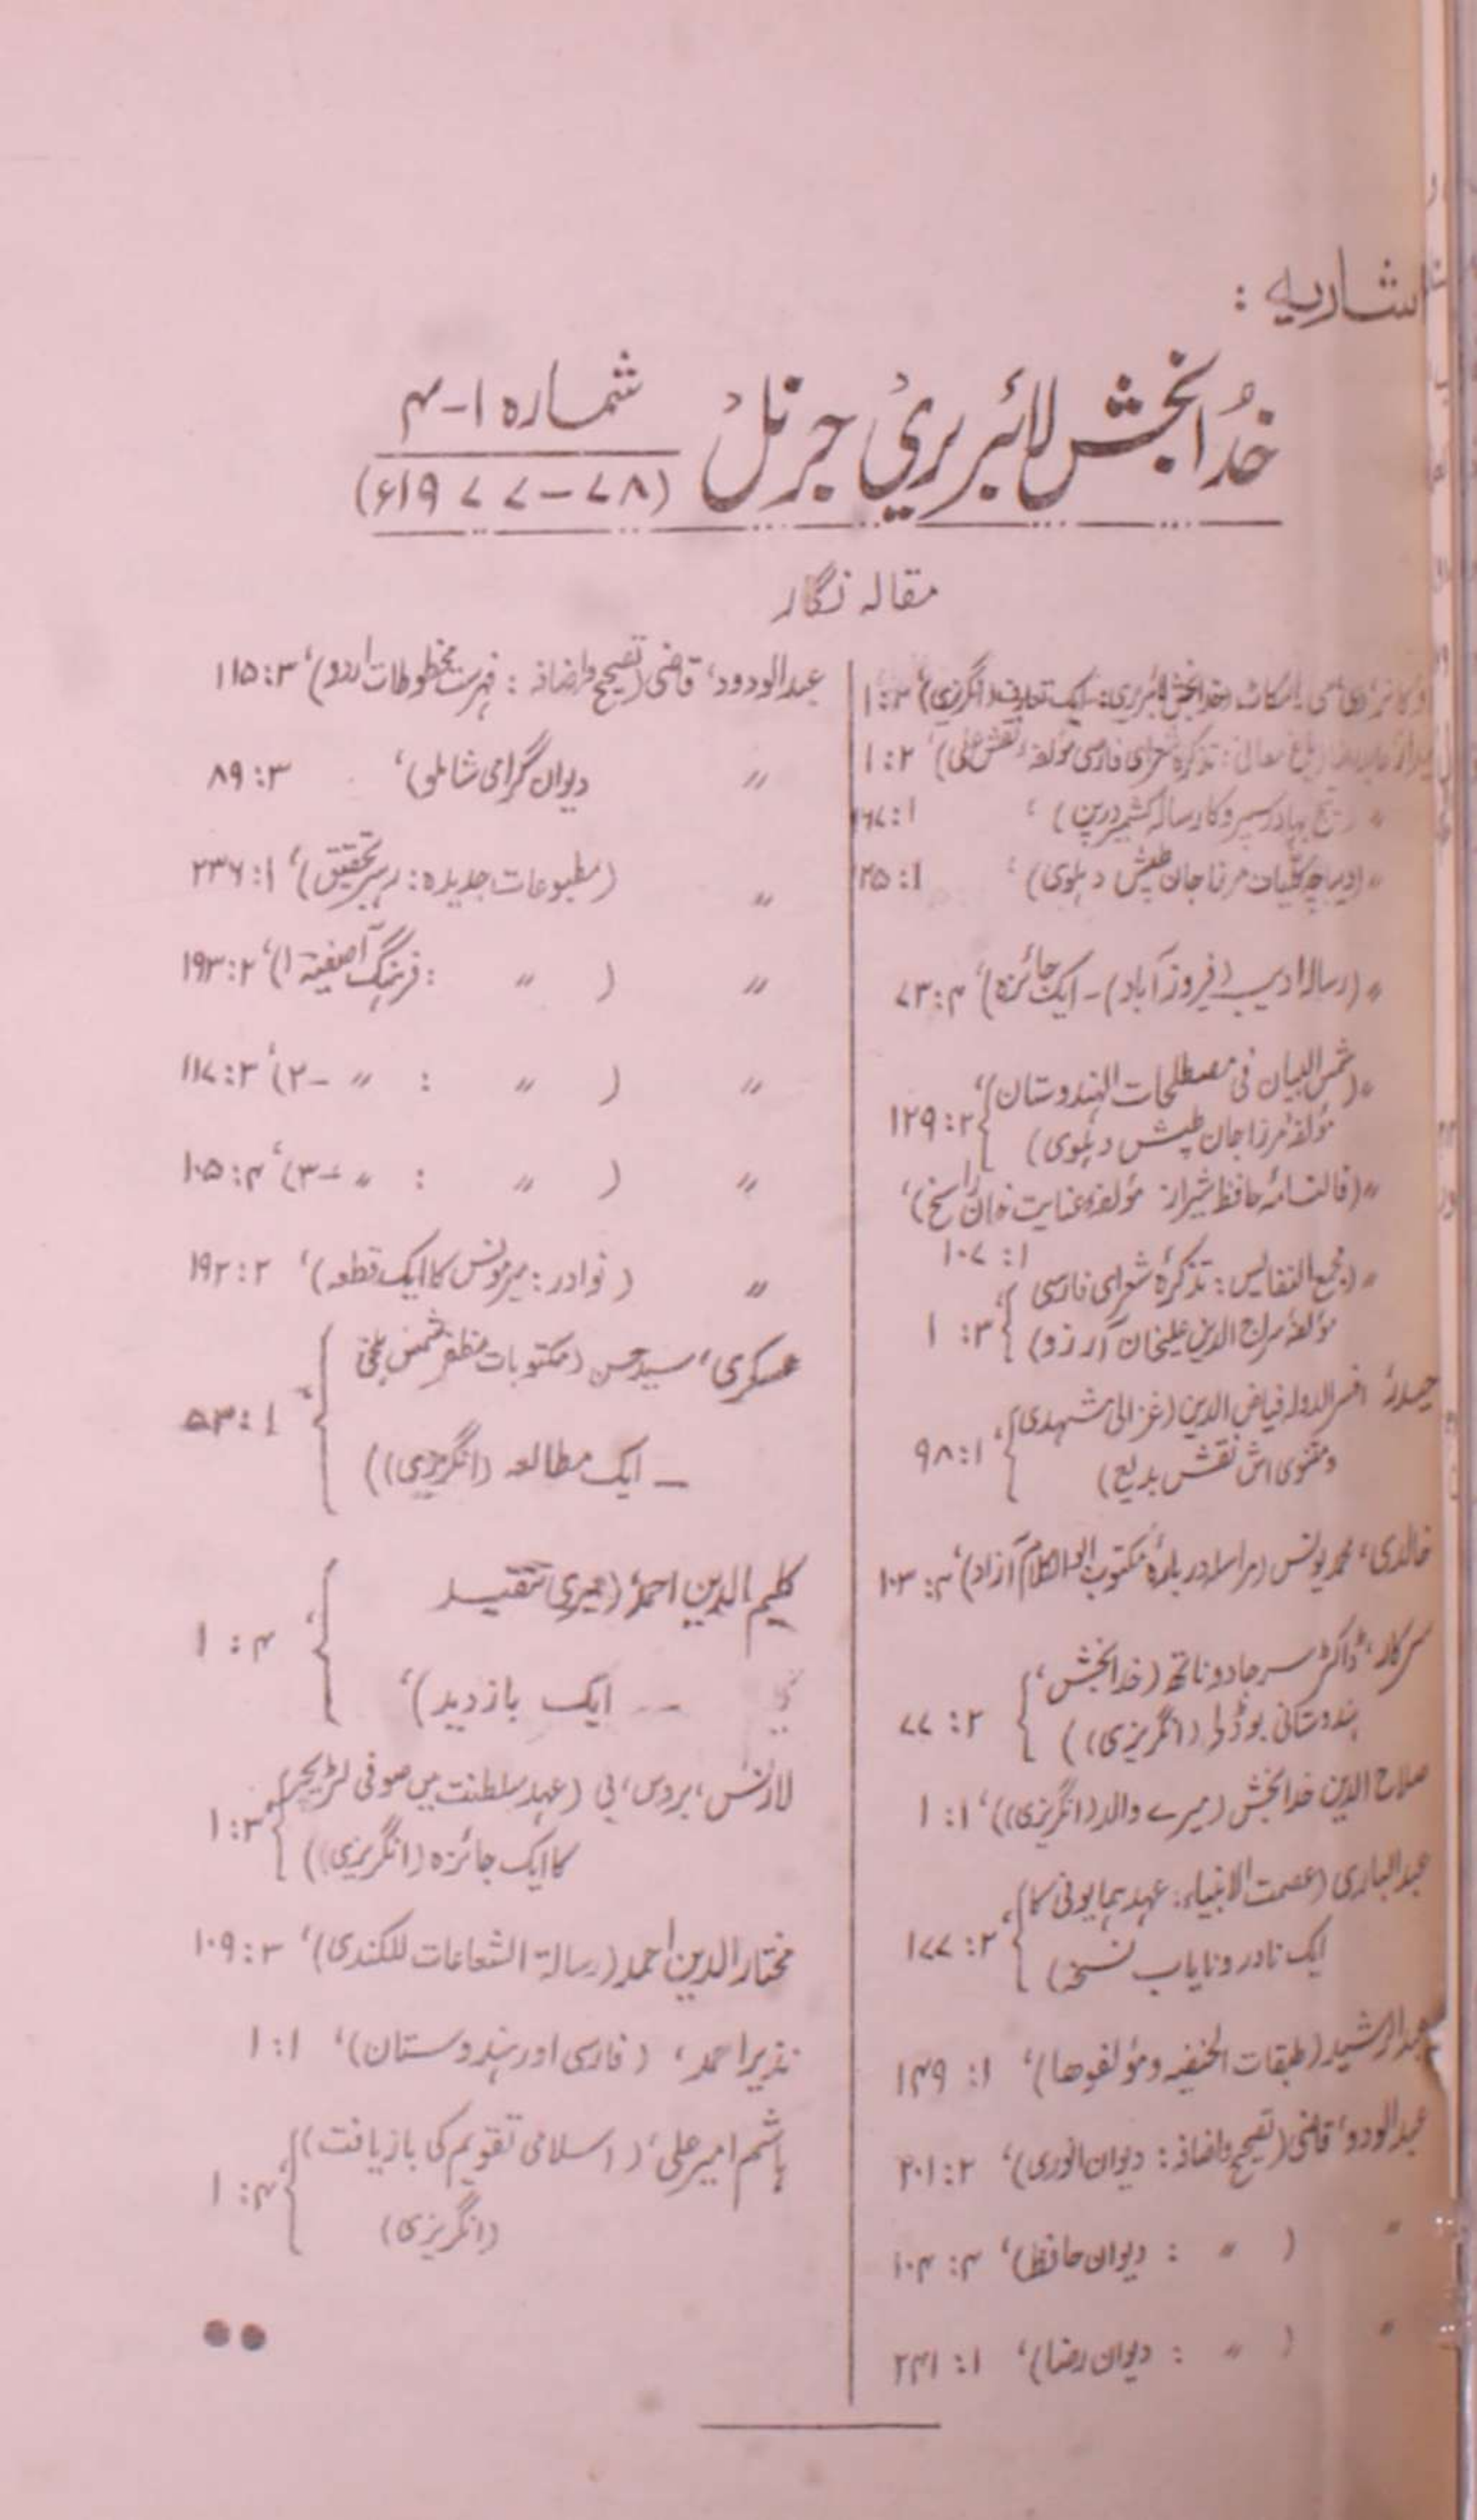 اشاریہ :
خدا بخش لائبریری جرنل شمارہ ۱-۴
(۷۸-۱۹۷۷ء)
مقالہ نگار
(خدا بخش لائبریری: ایک تعارف (انگریزی)) ۱:۳
تذکرہ شعرای فارسی مؤلفہ نقش علی)، ۲ : ۱
بہادر سپرو کا رسالہ کشمیر درپن) ؛ ۱:
〃 (دیباچہ کلیات مرزا جان طپش دہلوی) ؛ ۱:
〃 (رسالہ ادیب (فیروزآباد) - ایک جائزہ)، ۴: ۷۳
〃 (شمس البیان فی مصطلحات الہندوستان)،
مؤلفہ مرزا جان طپش دہلوی) ۲: ۱۲۹
〃 (فالنامۂ حافظ شیراز مؤلفہ عنایت خان راسخ)،
۱: ۱۰۷
〃 (مجمع النفائس: تذکرۂ شعرای فارسی
مؤلفہ سراج الدین علیخان آرزو) ۳: ۱
افسر الدولہ فیاض الدین (غزالی مشہدی
ومثنوی اش نقش بدیع) ۱: ۹۸
خالدی، محمد یونس (مراسلہ در بارۂ مکتوب ابوالکلام آزاد)، ۴: ۱۰۳
سرکار، ڈاکٹر سر جادو ناتھ (خدا بخش،
ہندوستانی بوڈلے (انگریزی)) ۲: ۷۷
صلاح الدین خدا بخش (میرے والد (انگریزی))، ۱: ۱
عبدالباری (عصمت الانبیاء: عہد ہمایونی کا
ایک نادر و نایاب نسخہ) ۲: ۱۷۷
عبدالرشید (طبقات الحنفیہ ومؤلفوھا)، ۱: ۱۴۹
عبدالودود، قاضی (تصحیح واضافہ : دیوان انوری)، ۲: ۲۰۱
〃 ( 〃 : دیوان حافظ)، ۴: ۱۰۴
〃 ( 〃 : دیوان رضا)، ۱: ۲۴۱
عبدالودود، قاضی (تصحیح واضافہ : فہرست مخطوطات اردو)، ۳: ۱۱۵
〃 دیوان گرامی شاملو)، ۳: ۸۹
〃 (مطبوعات جدیدہ: رہبر تحقیق)، ۱: ۲۳۶
〃 ( 〃 : فرہنگ آصفیہ ۱)، ۲: ۱۹۳
〃 ( 〃 : 〃 -۲)، ۳: ۱۱۷
〃 ( 〃 : 〃 -۳)، ۴: ۱۰۵
〃 (نوادر : میر مونس کا ایک قطعہ)، ۲: ۱۹۲
عسکری، سید حسن (مکتوبات مظفر شمس بلخی
– ایک مطالعہ (انگریزی)) ۱: ۵۳
کلیم الدین احمد (میری تنقید
-- ایک بازدید)، ۴: ۱
لارنس، بروس، بی (عہد سلطنت میں صوفی لٹریچر
کا ایک جائزہ (انگریزی)) ۳: ۱
مختار الدین احمد (رسالۃ الشعاعات للکندی)، ۳: ۱۰۹
نذیر احمد، (فارسی اور ہندوستان)، ۱: ۱
ہاشم امیر علی، (اسلامی تقویم کی بازیافت)
(انگریزی) ۴: ۱